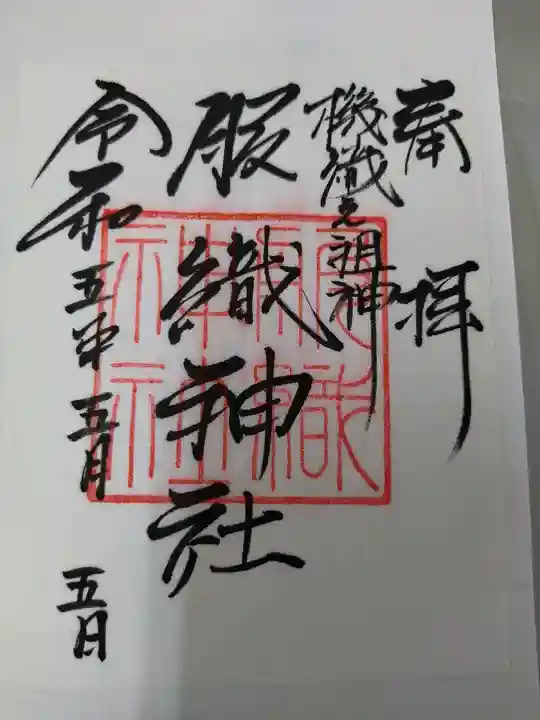 奉拝
機織之祖神
服織神社
令和五年五月五日